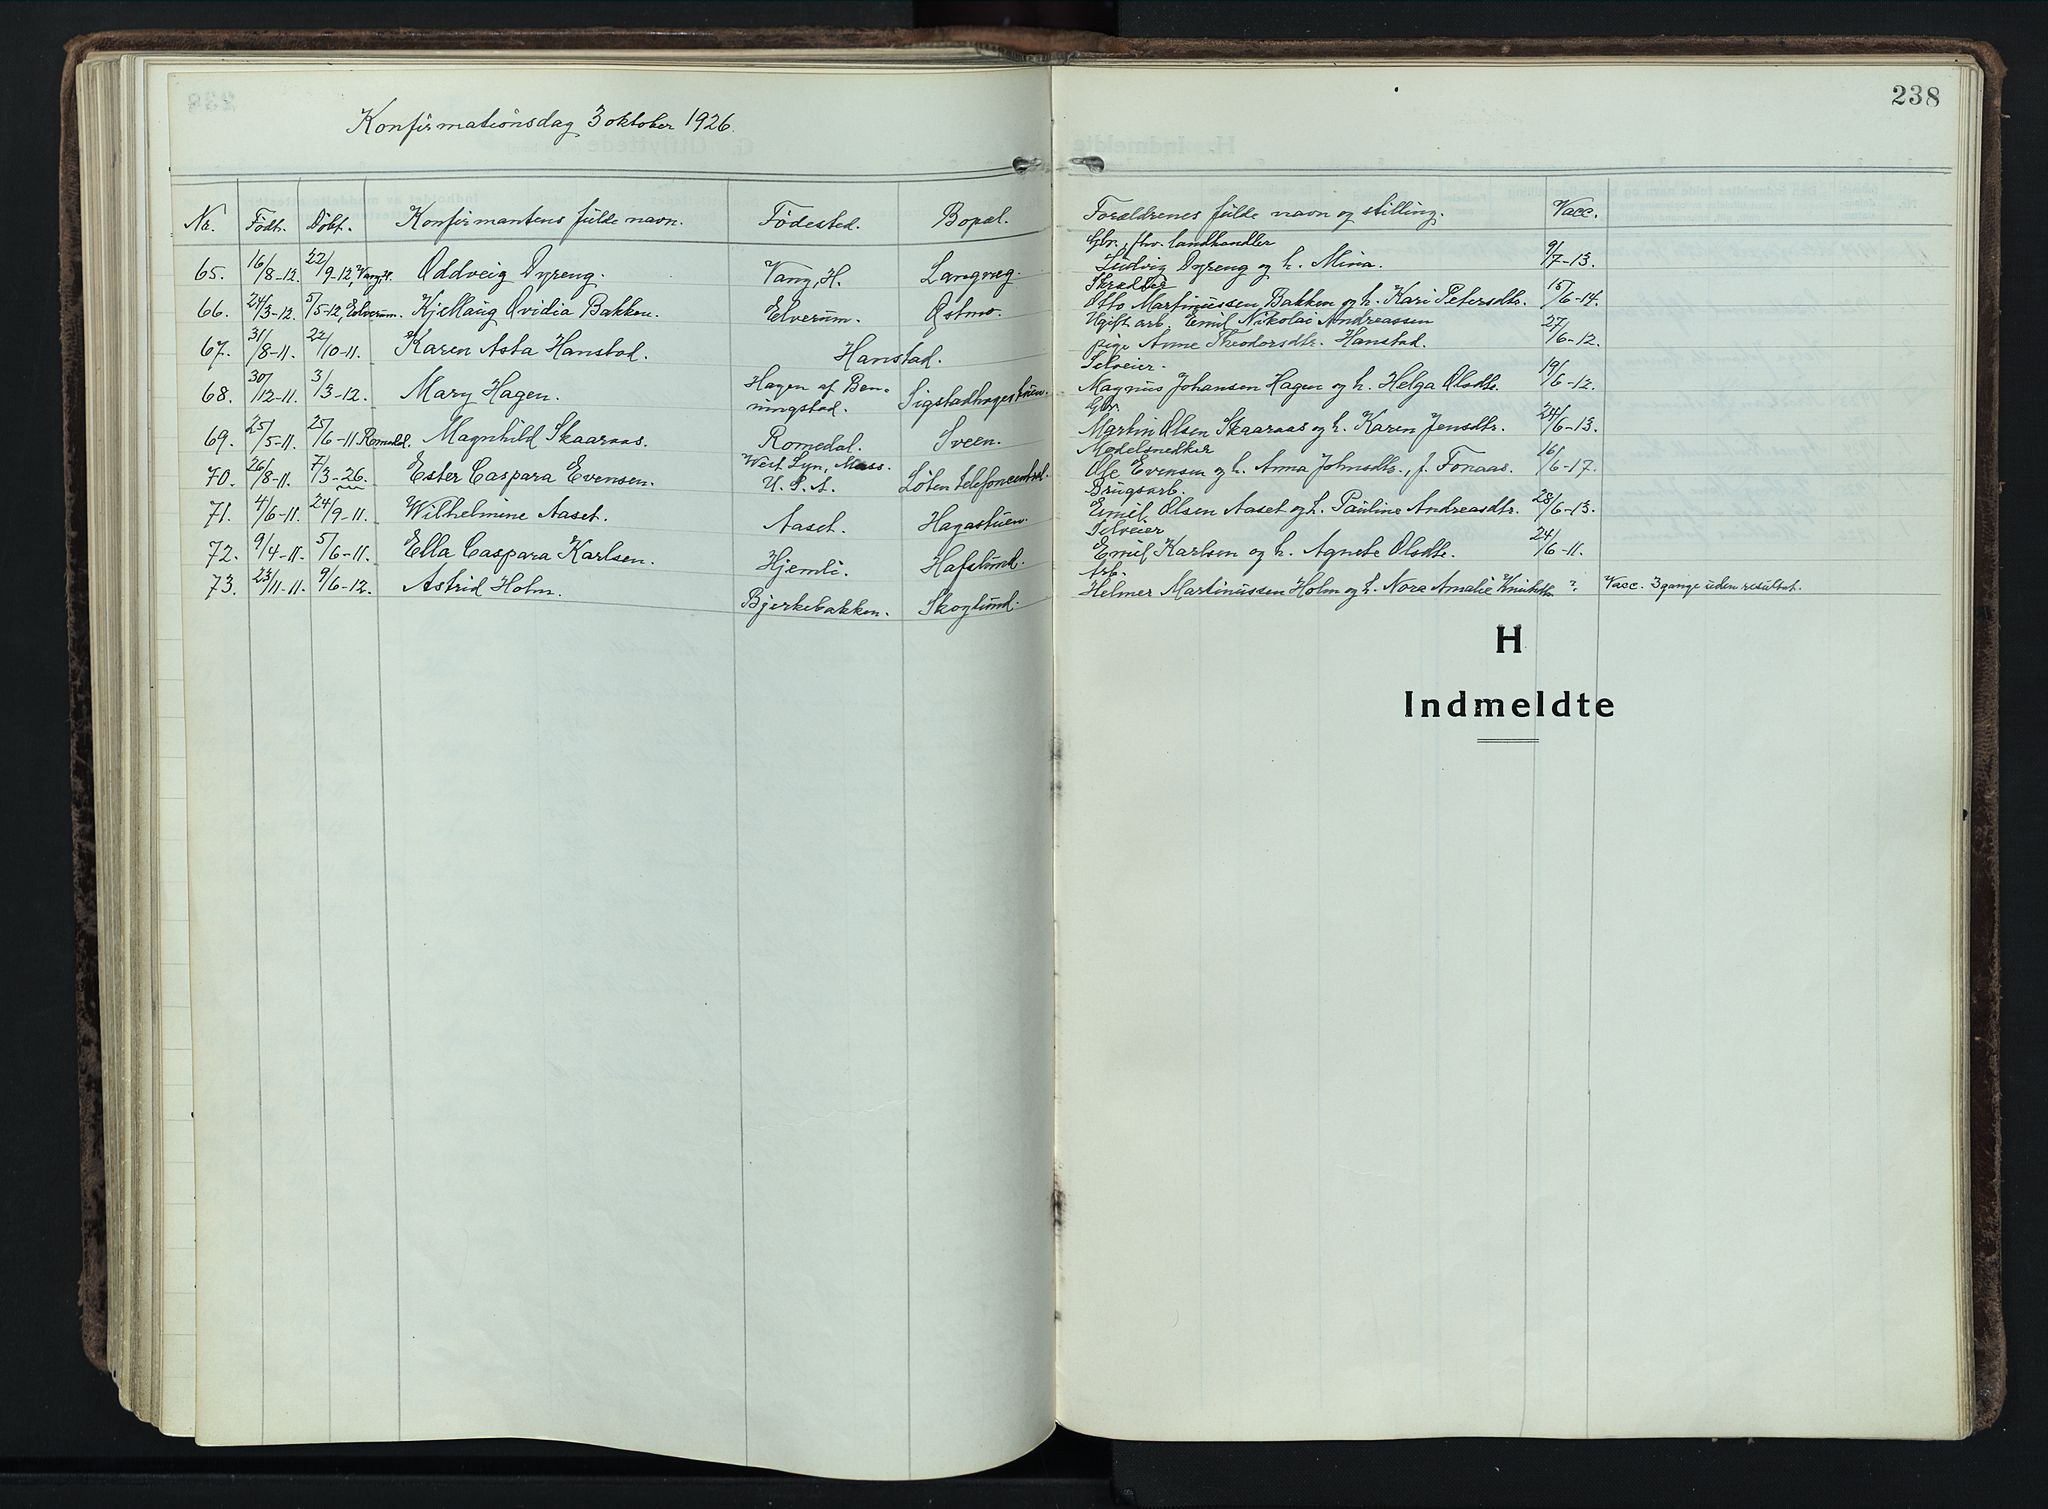 238
Konfirmationsdag 3 oktober 1926.
No. Født. Døbt. Konfirmantens fulde navn. Fødested. Bopæl. Forældrenes fulde navn og stilling. Vacc.
Gbr., fhv. landhandler
65. 16/8-12. 22/9-12, Vang, H. Oddveig Dyreng. Vang, H. Langveg. Ludvig Dyreng og h. Mina. 9/7-13.
Skrædder
66. 24/3-12. 5/5-12, Elverum. Kjellaug Ovidia Bakken. Elverum. Østmo. Otto Martinussen Bakken og h. Kari Petersdtr. 15/6-14.
Ugift arb. Emil Nikolai Andreassen
67. 31/8-11. 22/10-11. Karen Asta Hanstad. Hanstad. pige Anne Theodorsdtr. Hanstad. 27/6-12.
Selveier.
68. 30/12-11. 3/3-12. Mary Hagen. Hagen af Ben-
ningstad. Sigstadhagestuen. Magnus Johansen Hagen og h. Helga Olsdtr. 19/6-12.
Gbr.
69. 25/5-11. 25/6-11 Romedal. Magnhild Skaaraas. Romedal. Sveen. Martin Olsen Skaaraas og h. Karen Jensdtr. 24/6-13.
Modelsnedker
70. 26/8-11. 7/3-26. Ester Caspara Evensen. West Lyn, Mass.
U. S. A. Løten telefoncentral. Ole Evensen og h. Anna Johnsdtr., f. Fonaas. 16/6-17.
Brugsarb.
71. 4/6-11. 24/9-11. Wilhelmine Aaset. Aaset. Hagastuen. Emil Olsen Aaset og h. Pauline Andreasdtr. 28/6-13.
Selveier
72. 9/4-11. 5/6-11. Ella Caspara Karlsen. Hjemli. Hafslund. Emil Karlsen og h. Agnete Olsdtr. 24/6-11.
Arb.
73. 23/11-11. 9/6-12. Astrid Holm. Bjerkebakken. Skoglund. Helmer Martinussen Holm og h. Nora Amalie Knutsdtr ? Vacc. 3 gange uden resultat.
H
Indmeldte